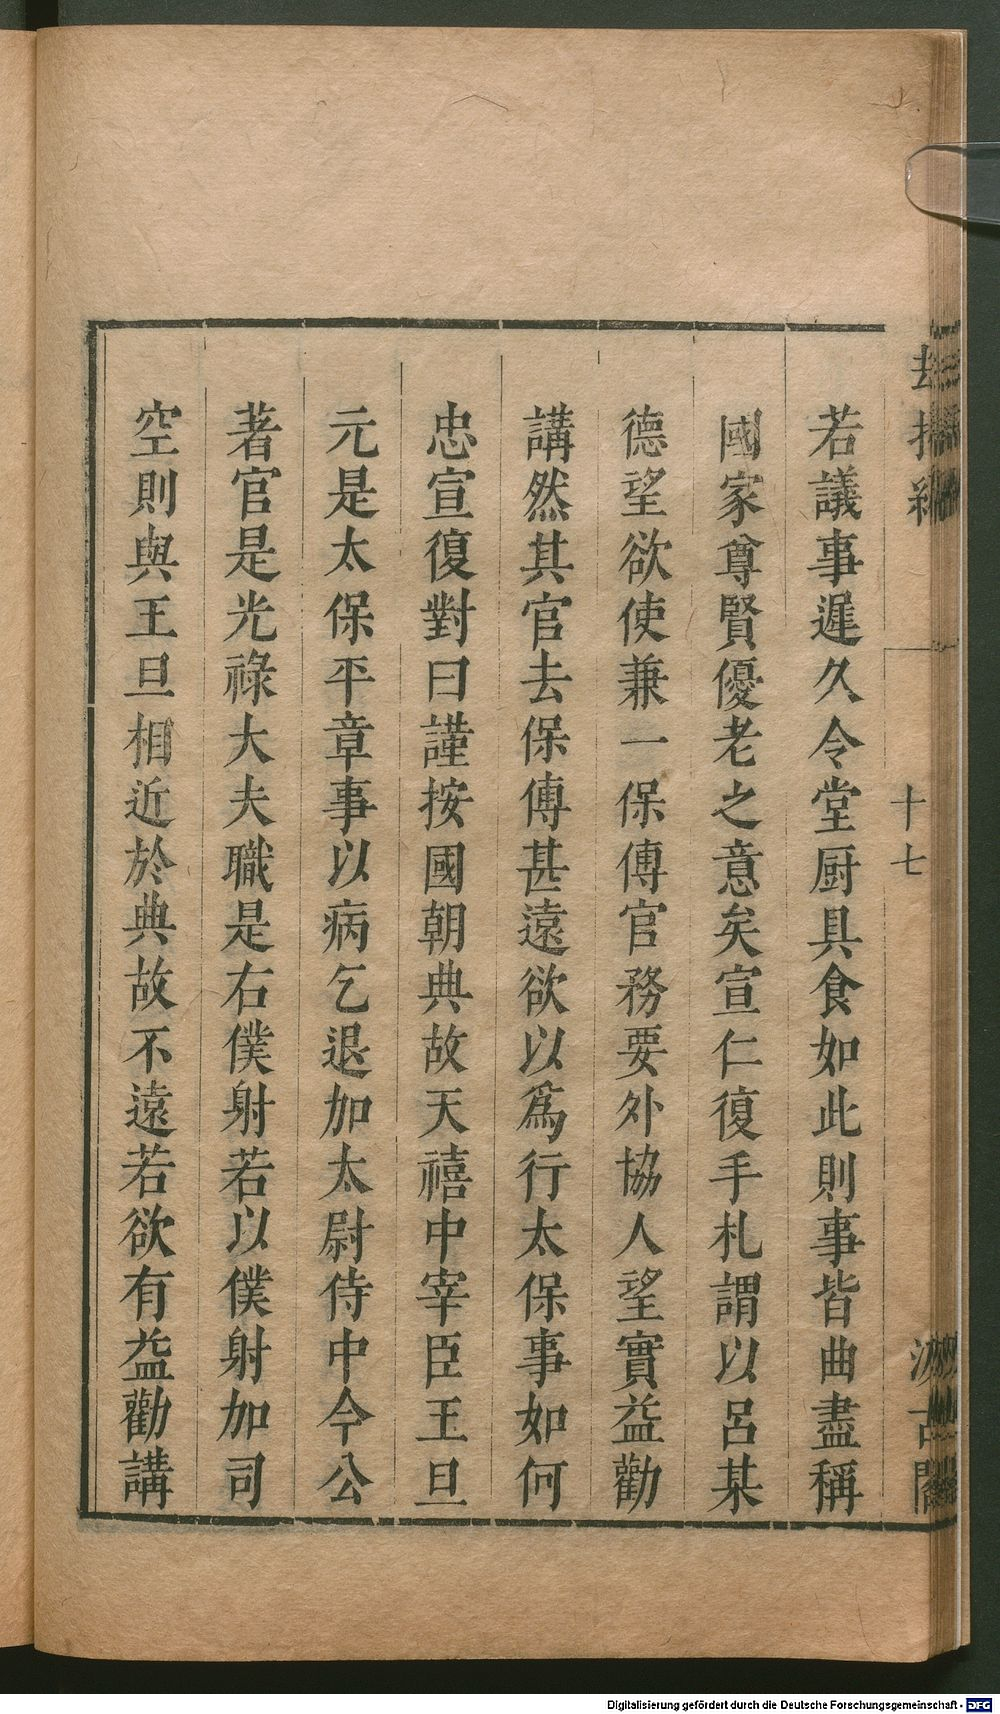 若議事遲久令堂厨具食如此則事皆曲盡稱
國家尊賢優老之意矣宣仁復手札謂以呂某
德望欲使兼一保傅官務要外協人望實益勸
講然其官去保傅甚遠欲以爲行太保事如何
忠宣復對曰謹按國朝典故天禧中宰臣王旦
元是太保平章事以病乞退加太尉侍中今公
著官是光祿大夫職是右僕射若以僕射加司
空則與王旦相近於典故不遠若欲有益勸講
十七
汲古閣
Digitalisierung gefördert durch die Deutsche Forschungsgemeinschaft - DFG